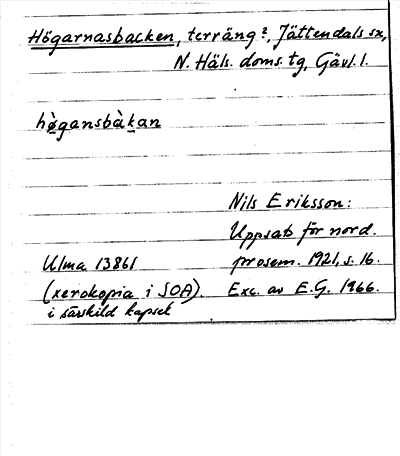 Högarnasbacken, terräng?, Jättendals sn,
N. Häls. doms. tg, Gävl. l.
hø̀gansbàkan
Nils Eriksson:
Uppsats för nord.
Ulma 13861 prosem. 1921, s. 16.
(xerokopia i SOA). Exc. av E.G. 1966.
i särskild kapsel